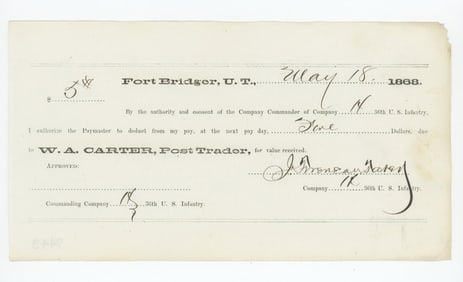 Fort Bridger, U. T., May 18. 1868.
$ 5
By the authority and consent of the Company Commander of Company H 36th U. S. Infantry,
I authorize the Paymaster to deduct from my pay, at the next pay day, Five Dollars, due
to W. A. CARTER, Post Trader, for value received.
APPROVED:
J.
Company H 36th U. S. Infantry.
Commanding Company H 36th U. S. Infantry.